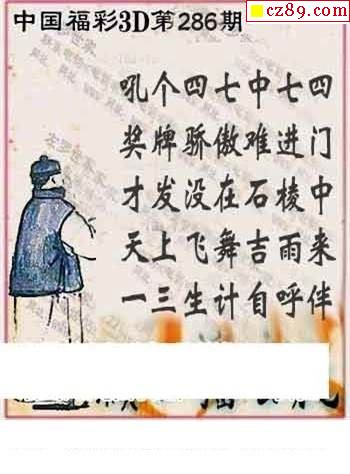 cz89.com
中国福彩3D第286期
吼个四七中七四
奖牌骄傲难进门
才发没在石棱中
天上飞舞吉雨来
一三生计自呼伴